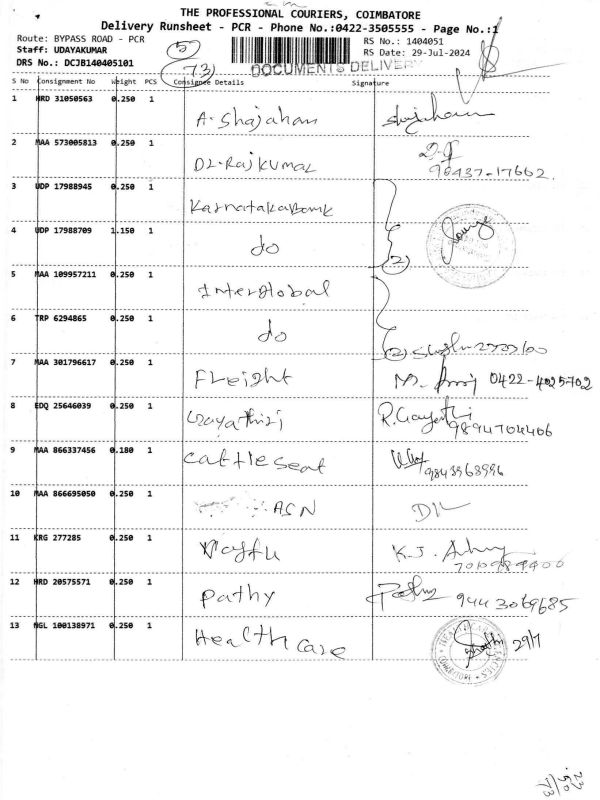 THE PROFESSIONAL COURIERS, COIMBATORE
Delivery Runsheet - PCR - Phone No.:0422-3505555 - Page No.:1
Route: BYPASS ROAD - PCR
RS No.: 1404051
Staff: UDAYAKUMAR
RS Date: 29-Jul-2024
DRS No.: DCJB140405101
5
73
DOCUMENTS DELIVERY
S No Consignment No Weight PCS Consignee Details Signature
1 HRD 31050563 0.250 1 A. Shajahan
2 MAA 573005813 0.250 1 Dr. Rajkumar 98437-17662
3 UDP 17988945 0.250 1 KarnatakaBank
4 UDP 17988709 1.150 1 do (2)
5 MAA 109957211 0.250 1 Interglobal
6 TRP 6294865 0.250 1 do (2)
7 MAA 301796617 0.250 1 Freight 0422-4025702
8 EDQ 25646039 0.250 1 Gayathiri R. Gayathri 9894704406
9 MAA 866337456 0.180 1 cattle seat 9843968996
10 MAA 866695050 0.250 1 ACN
11 KRG 277285 0.250 1 K.J.
12 HRD 20575571 0.250 1 Pathy 9443069685
13 NGL 100138971 0.250 1 Health care 29/7